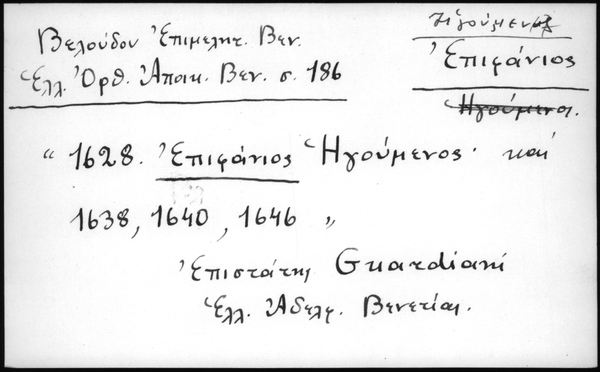 Βελούδου Ἐπιμελητ. Βεν.
Ἑλλ. Ὀρθ. Ἀποικ. Βεν. σ. 186
Ἡγούμενος
Ἐπιφάνιος
Ἡγούμενος.
“ 1628. Ἐπιφάνιος Ἡγούμενος· καὶ
1638, 1640, 1646 „
Ἐπιστάτης Guardiani
Ἑλλ. Ἀδελφ. Βενετίας.